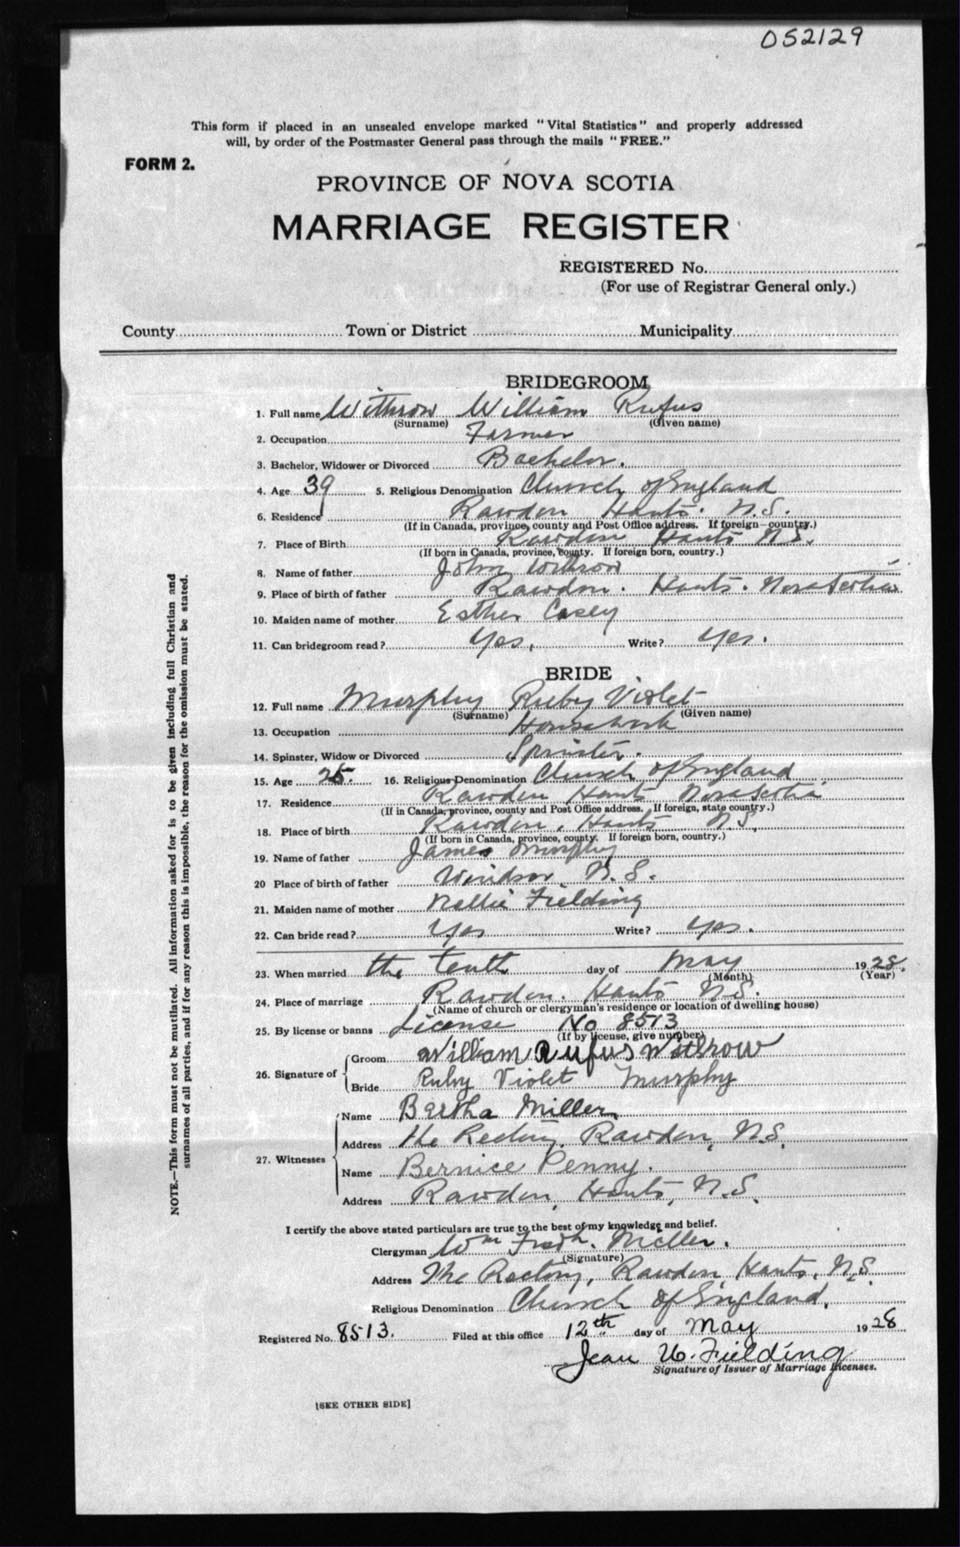 052129
This form if placed in an unsealed envelope marked "Vital Statistics" and properly addressed
will, by order of the Postmaster General pass through the mails "FREE."
FORM 2.
PROVINCE OF NOVA SCOTIA
MARRIAGE REGISTER
REGISTERED No.
(For use of Registrar General only.)
County Town or District Municipality
BRIDEGROOM
1. Full name Withrow William Rufus
(Surname) (Given name)
2. Occupation Farmer
3. Bachelor, Widower or Divorced Bachelor.
4. Age 39 5. Religious Denomination Church of England
6. Residence Rawdon Hants. N.S.
(If in Canada, province, county and Post Office address. If foreign—country.)
7. Place of Birth Rawdon Hants N.S.
(If born in Canada, province, county. If foreign born, country.)
8. Name of father John Withrow
9. Place of birth of father Rawdon. Hants. Nova Scotia
10. Maiden name of mother Esther Casey
11. Can bridegroom read? Yes, Write? Yes.
BRIDE
12. Full name Murphy Ruby Violet
(Surname) (Given name)
13. Occupation Housework
14. Spinster, Widow or Divorced Spinster.
15. Age 25. 16. Religious Denomination Church of England
17. Residence Rawdon Hants Nova Scotia
(If in Canada, province, county and Post Office address. If foreign, state country.)
18. Place of birth Rawdon, Hants N.S.
(If born in Canada, province, county. If foreign born, country.)
19. Name of father James Murphy
20 Place of birth of father Windsor N.S.
21. Maiden name of mother Nellie Fielding
22. Can bride read? Yes Write? Yes.
23. When married the tenth day of May 1928.
(Month) (Year)
24. Place of marriage Rawdon. Hants N.S.
(Name of church or clergyman's residence or location of dwelling house)
25. By license or banns License No 8513
(If by license, give number)
26. Signature of Groom William Rufus Withrow
Bride Ruby Violet Murphy
27. Witnesses
Name Bertha Miller
Address The Rectory, Rawdon, N.S.
Name Bernice Penny.
Address Rawdon, Hants, N.S.
I certify the above stated particulars are true to the best of my knowledge and belief.
Clergyman Wm Fredk. Miller.
(Signature)
Address The Rectory, Rawdon, Hants, N.S.
Religious Denomination Church of England.
Registered No. 8513. Filed at this office 12th day of May 1928
Jean W. Fielding
Signature of Issuer of Marriage Licenses.
[SEE OTHER SIDE]
NOTE.—This form must not be mutilated. All information asked for is to be given including full Christian and
surnames of all parties, and if for any reason this is impossible, the reason for the omission must be stated.